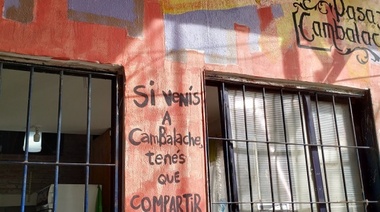 Pasaj
Cambalac
Si venís
A
CamBalache,
tenés
que
COMPARTIR